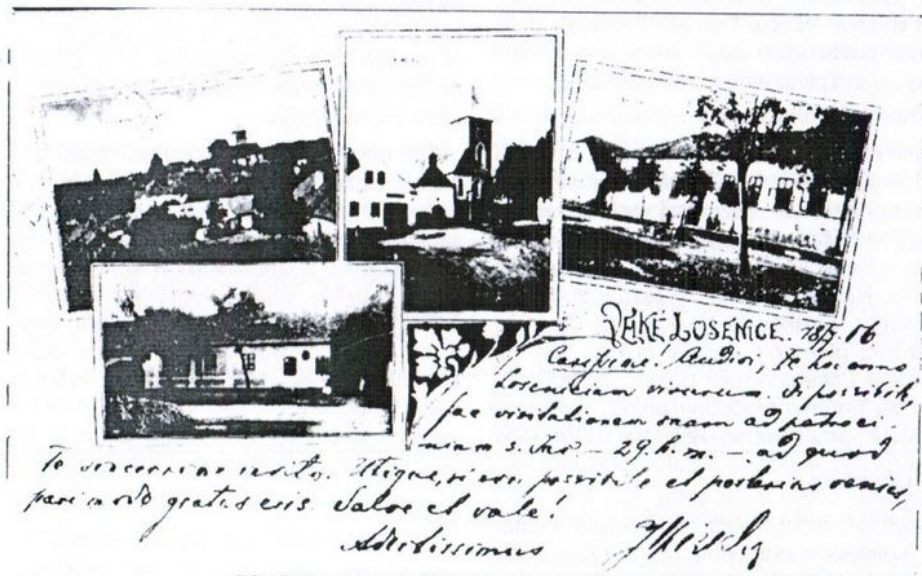 VHÉ LOSENICE. 18/7. 06
Carissime! Audivi, Te hoc anno
Losenciam visurum. Si possibile,
fac visitationem tuam ad patroci
nium s. – 29. h. m. – ad quod
Te sincerrime invito. Utique, si non possibile et posterius venies,
pari modo gratus eris. Salve et vale!
Addictissimus